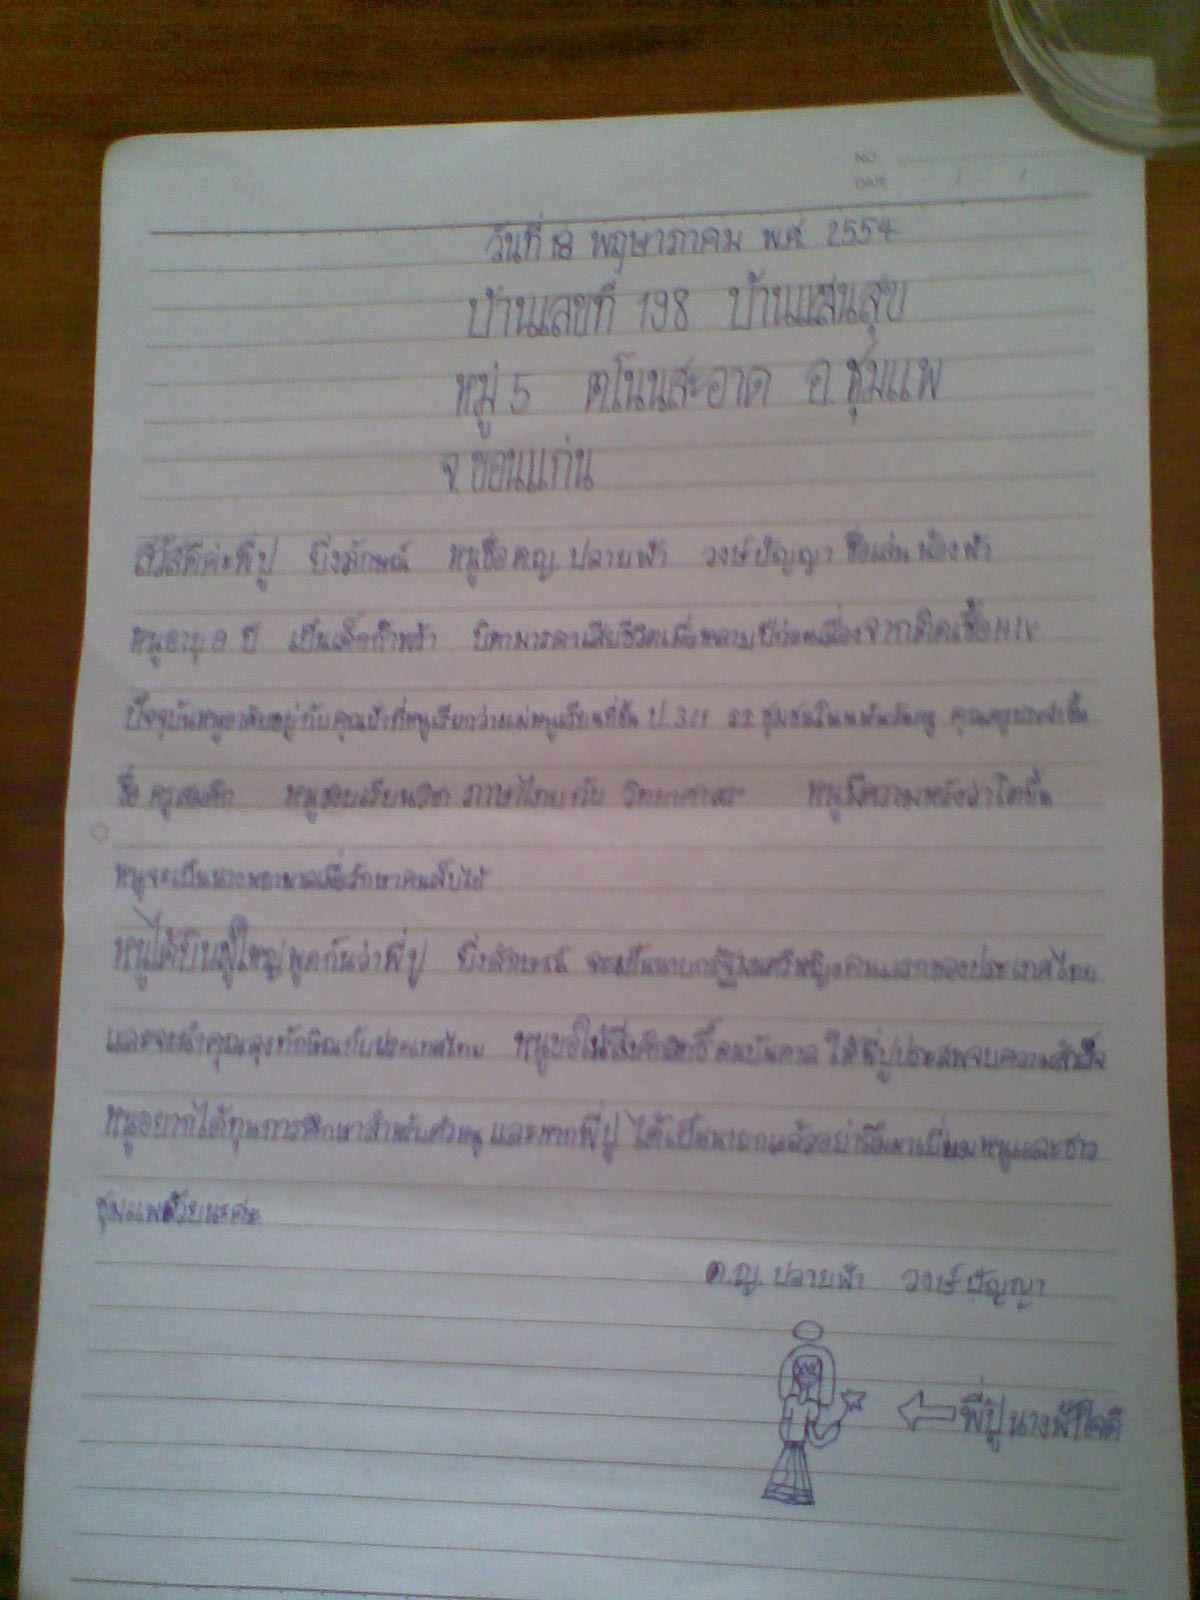 NO
DATE / /
วันที่ 18 พฤษาภาคม พ.ศ. 2554
บ้านเลขที่ 198 บ้านแสนสุข
หมู่ 5 ตโนนสะอาด อ.ชุมแพ
จ.ขอนแก่น
สวัสดีค่ะพี่ปู ยิ่งลักษณ์ หนูชื่อ ดญ. ปลายฟ้า วงษ์ปัญญา ชื่อเล่น น้องฟ้า
หนูอายุ 9 ปี เป็นเด็กกำพร้า บิดามารดาเสียชีวิตเมื่อหลายปีก่อนเนื่องจากติดเชื้อ HIV
ปัจจุบันหนูอาศัยอยู่กับคุณป้าที่หนูเรียกว่าแม่หนูเรียนที่ชั้น ป.3/1 รร ชุมชนโนนหันวันครู คุณครูประจำชั้น
ชื่อ ครูสมศักดิ์ หนูชอบเรียนวิชา ภาษาไทย กับ วิทยาศาสตร์ หนูมีความหวังว่าโตขึ้น
หนูจะเป็นนางพยาบาลเพื่อรักษาคนเจ็บไข้
หนูได้ยินผู้ใหญ่พูดกันว่าพี่ปู ยิ่งลักษณ์ จะเป็นนายกรัฐมนตรีหญิงคนแรกของประเทศไทย
และจะนำคุณลุงทักษิณกับประเทศไทย หนูขอให้สิ่งศักสิทธิ์ดนบันดาล ให้พี่ปูประสพจบความสำเร็จ
หนูอยากได้ทุนการศึกษาสำหรับตัวหนู และหากพี่ปู ได้เป็นนายกแล้วอย่าลืมมาเยี่ยมหนูและชาว
ชุมแพด้วยนะค่ะ
ด.ญ. ปลายฟ้า วงษ์ปัญญา
พี่ปู นางฟ้าใจดี